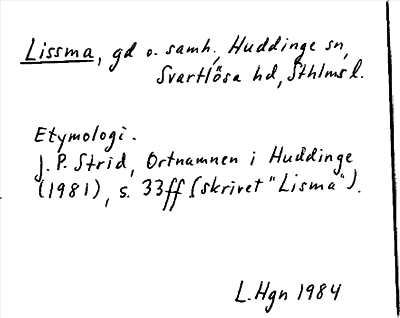 Lissma, gd o. samh., Huddinge sn,
Svartlösa hd, Sthlms l.
Etymologi.
J. P. Strid, Ortnamnen i Huddinge
(1981), s. 33ff (skrivet "Lisma").
L. Hgn 1984